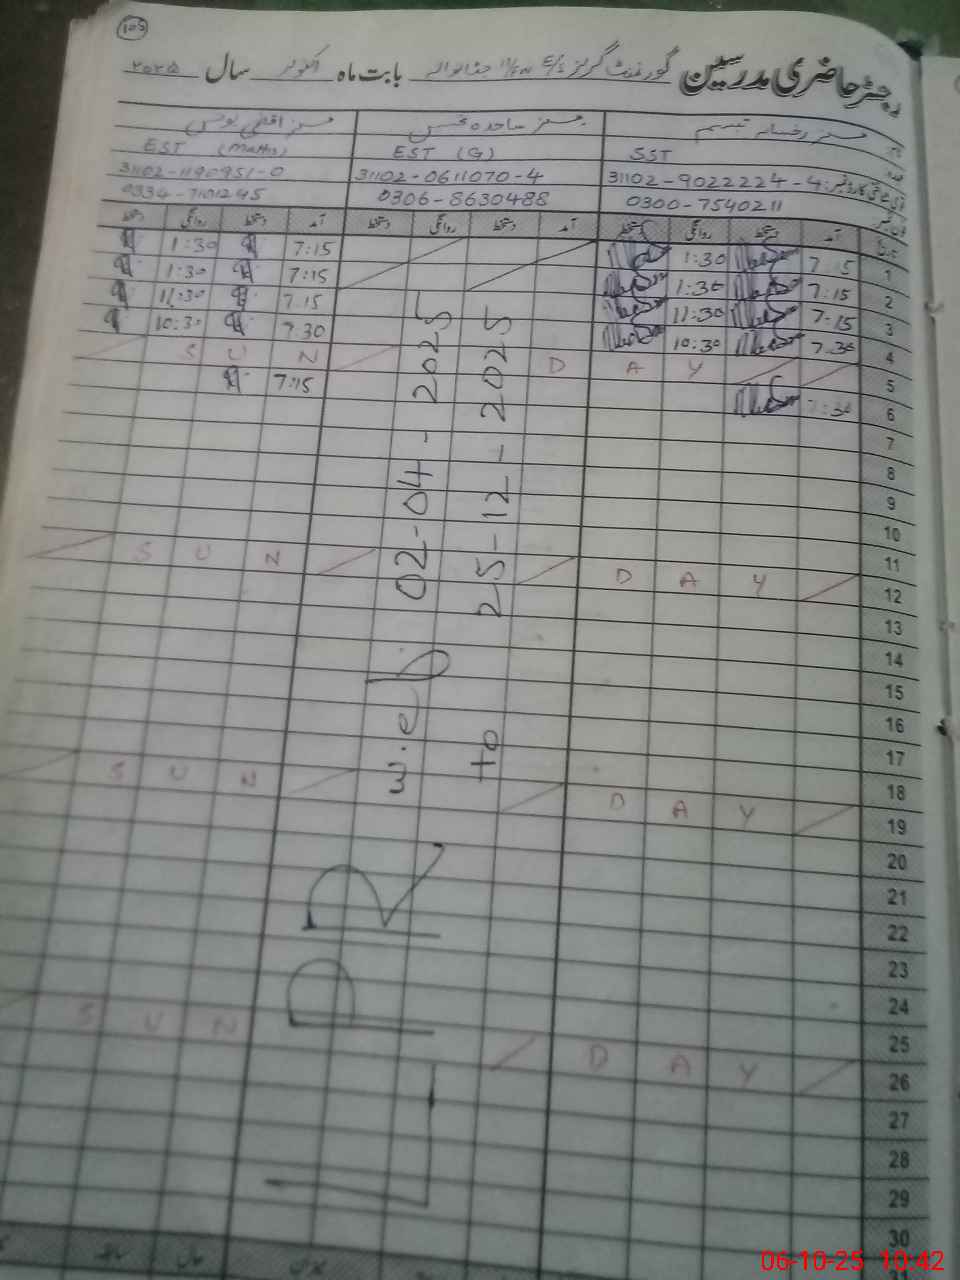 105
رجسٹر حاضری مدرسین گورنمنٹ گرلز بابت ماہ اکتوبر سال ۲۰۲۵
مسز رخسانہ تبسم
مسز ساجدہ
مسز اقصیٰ یونس
SST
EST (G)
EST (Maths)
31102-9022224-4
31102-0611070-4
31102-1190951-0
0300-7540211
0306-8630488
0334-7101245
آمد دستخط روانگی دستخط آمد دستخط روانگی دستخط آمد دستخط روانگی دستخط
1 7:15 1:30 7:15 1:30
2 7:15 1:30 7:15 1:30
3 7:15 11:30 7:15 11:30
4 7:30 10:30 7:30 10:30
5 S U N D A Y
6 7:30 7:15
7
8
9
10
11
12 S U N D A Y
13
14
15
16
17
18
19 S U N D A Y
20
21
22
23
24
25
26 S U N D A Y
27
28
29
30
LPR
w.e.b 02-04-2025
to 25-12-2025
میزان
حال
سابقہ
06-10-25 10:42